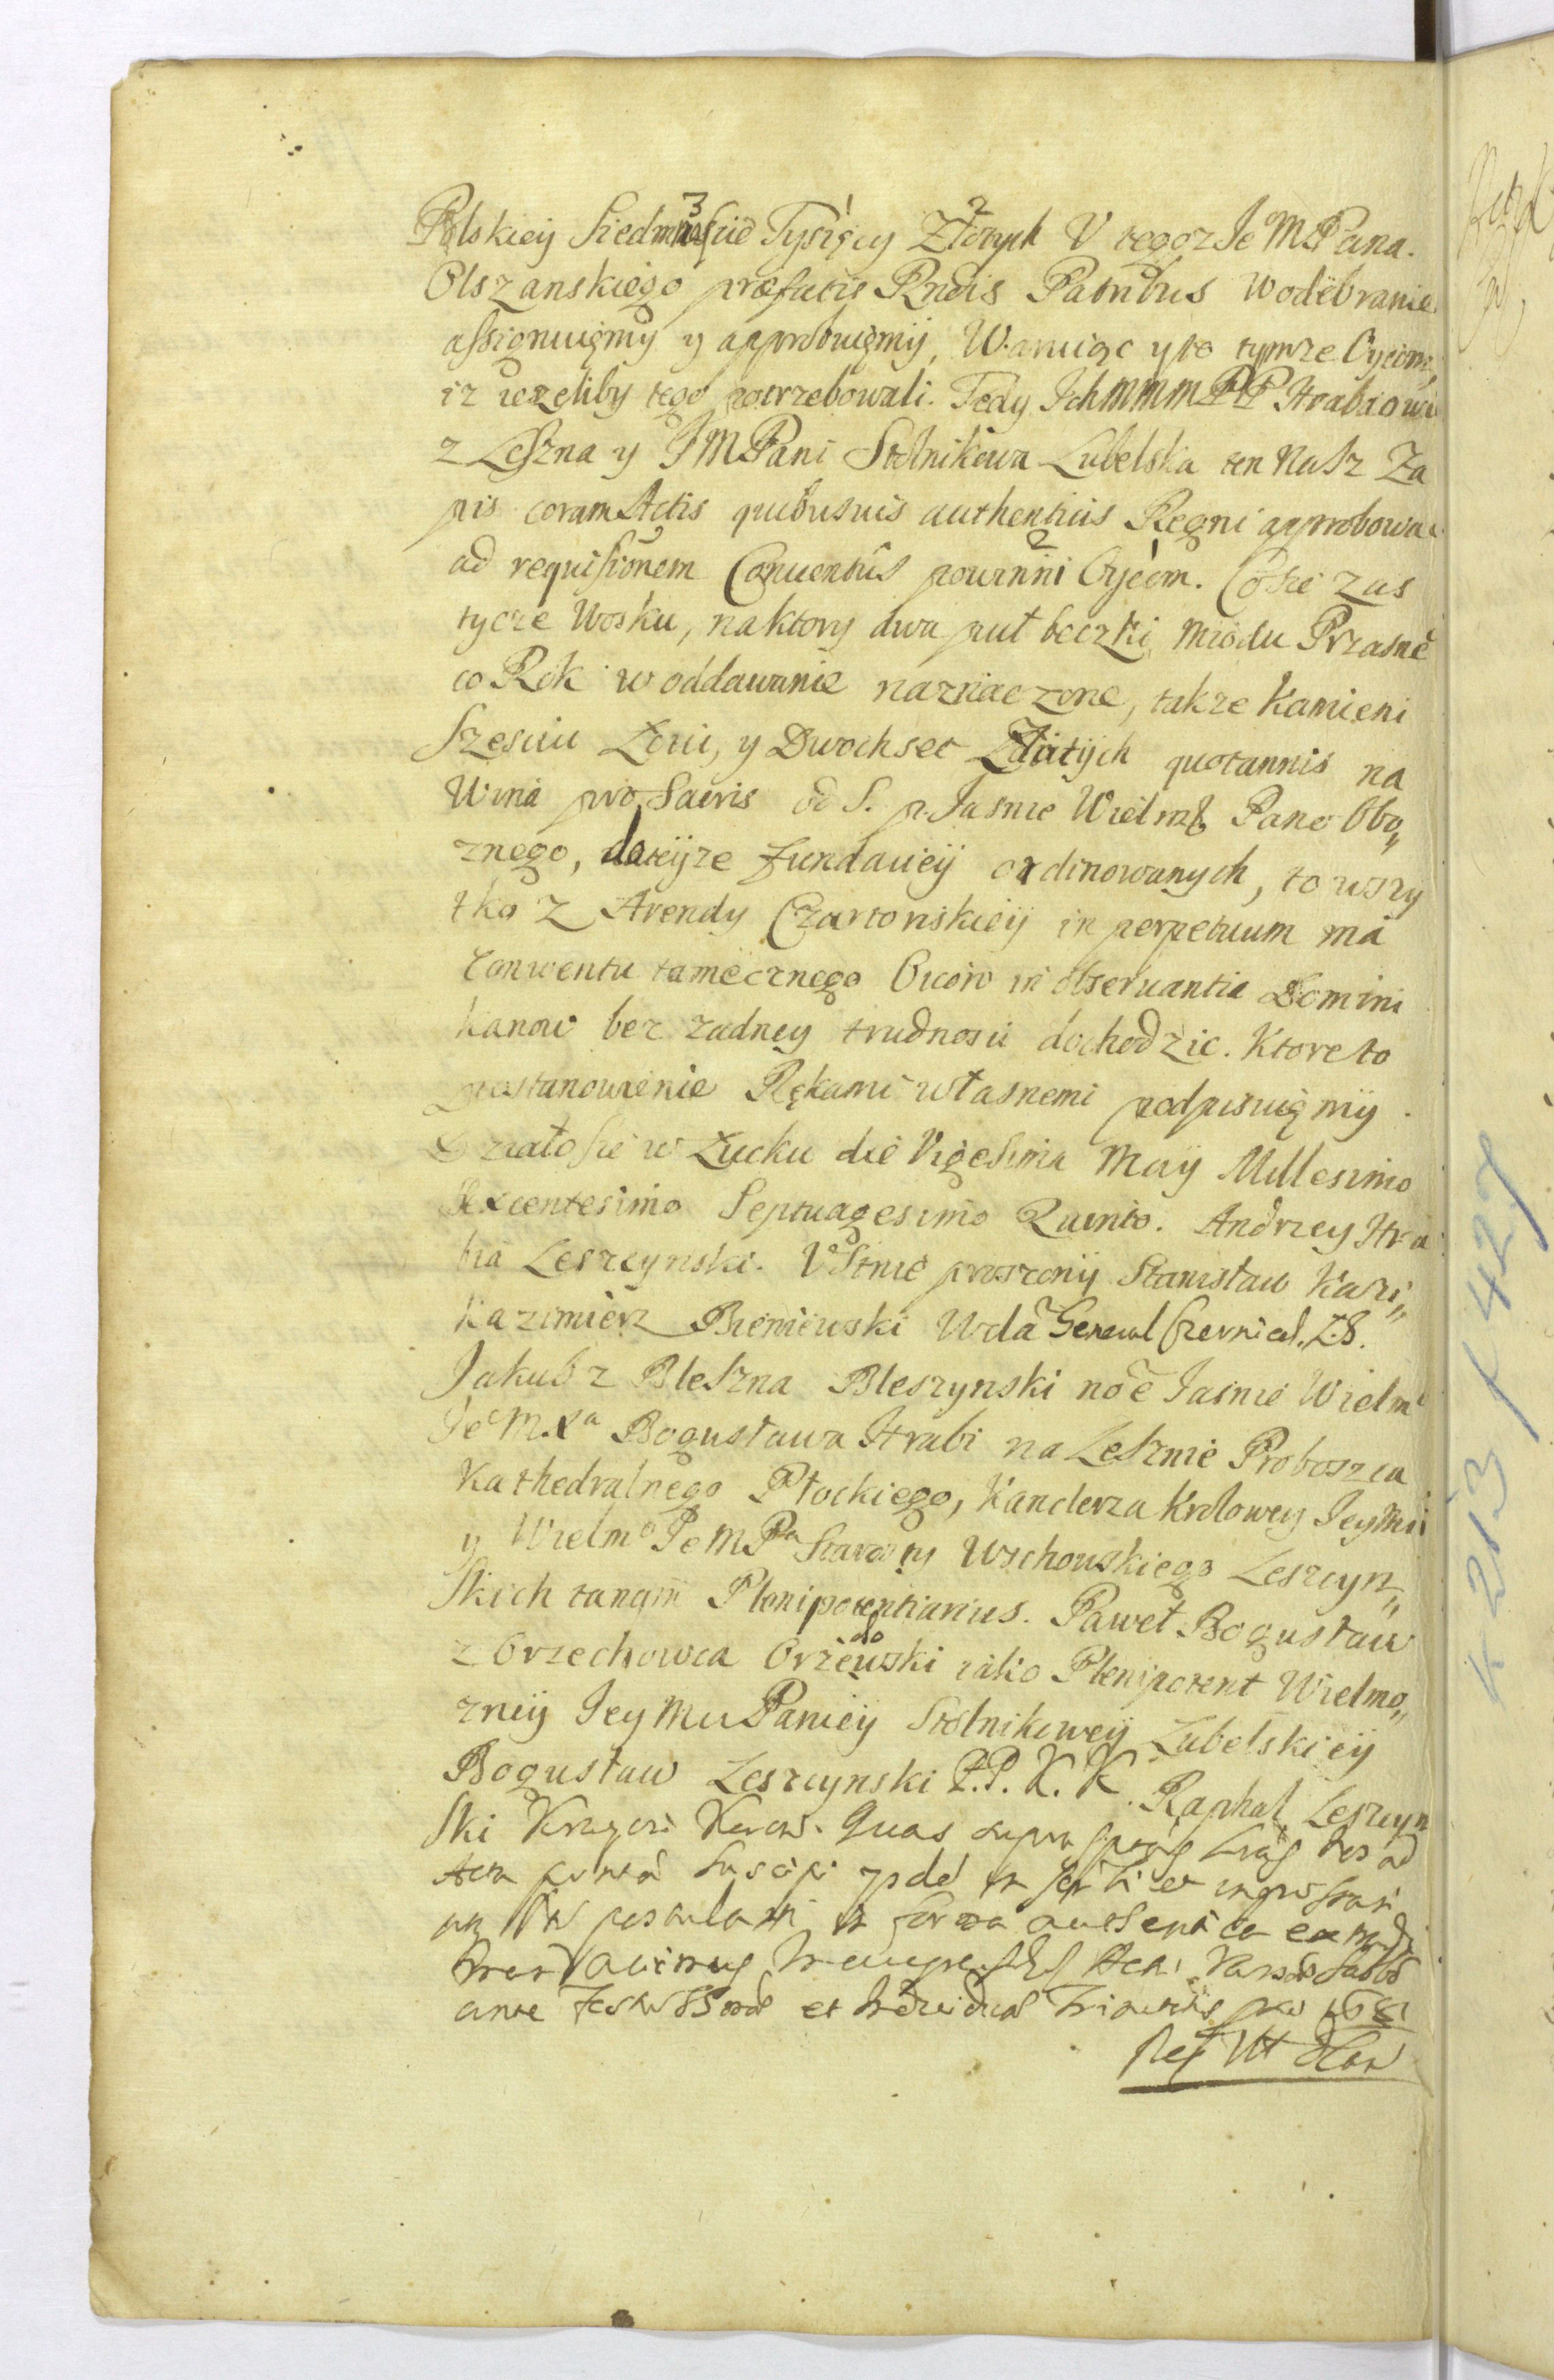 Polskiey Siedmnascie Tysięcy Złotych V tegoz Je MPana.
Olszanskiego præfatis Rndis Patribus Wodebranie
assignuięmy y approbuięmy, Waruiąc y to tymze Oycom,
iz iezeliby tego potrzebowali. Tedy Ichmmm PP Hrabiowie
z Leszna y JMPani Stolnikowa Lubelska ten Nasz Za
pis coram Actis quibusuis authenticis Regni approbowac
ad requisionem Conuentus powinni Oycom. Co sie zas
tycze Wosku, na ktory dwa puł beczki Miodu Przasne
co Rok w oddawanie naznaczone, takze Kamieni
Szesciu Łoiu, y Dwochset Złotych quotannis na
Wina pro Sacris od S. p. Jasnie Wielmz Pana Obo„
znego, do teyze Fundaciey ordinowanych, to wszy
tko z Arendy Czartoriskiey in perpetuum ma
Conwentu tamecznego Oicow in obseruantia Domini
kanow bez zadney trudnosci dochodzic. Ktore to
postanowienie Rękami własnemi podpisuięmy.
Działo sie w Łucku die Vigesima May Millesimo
Sexcentesimo Septuagesimo Quinto. Andrzey Hra
bia Leszczynski. Vstnie proszony Stanisław Kazi„
Kazimierz Bieniewski Wda General Czernieh. Z. S.
Jakub z Bleszna Bleszynski noe Jasnie Wielm
Je M.Xa Bogusława Hrabi na Lesznie Proboszcza
Kathedralnego Płockiego, Kanclerza Krolowey JeyMci
y Wielmo Je MPa Starosty Wschowskiego Leszczyn„
Skich tanqm Plenipotentiarius. Paweł Bogusław
z Orzechowca Orzechowski iako Plenipotent Wielmo„
zney Jey Mci Paniey Stolnikowey Lubelskiey
Bogusław Leszczynski P.P. K. K. Raphał Leszczyn
ski Krayczi Koron. Quas supra
Acta suscipi
postulavit in forma authentica extradi

ante Festum et 168